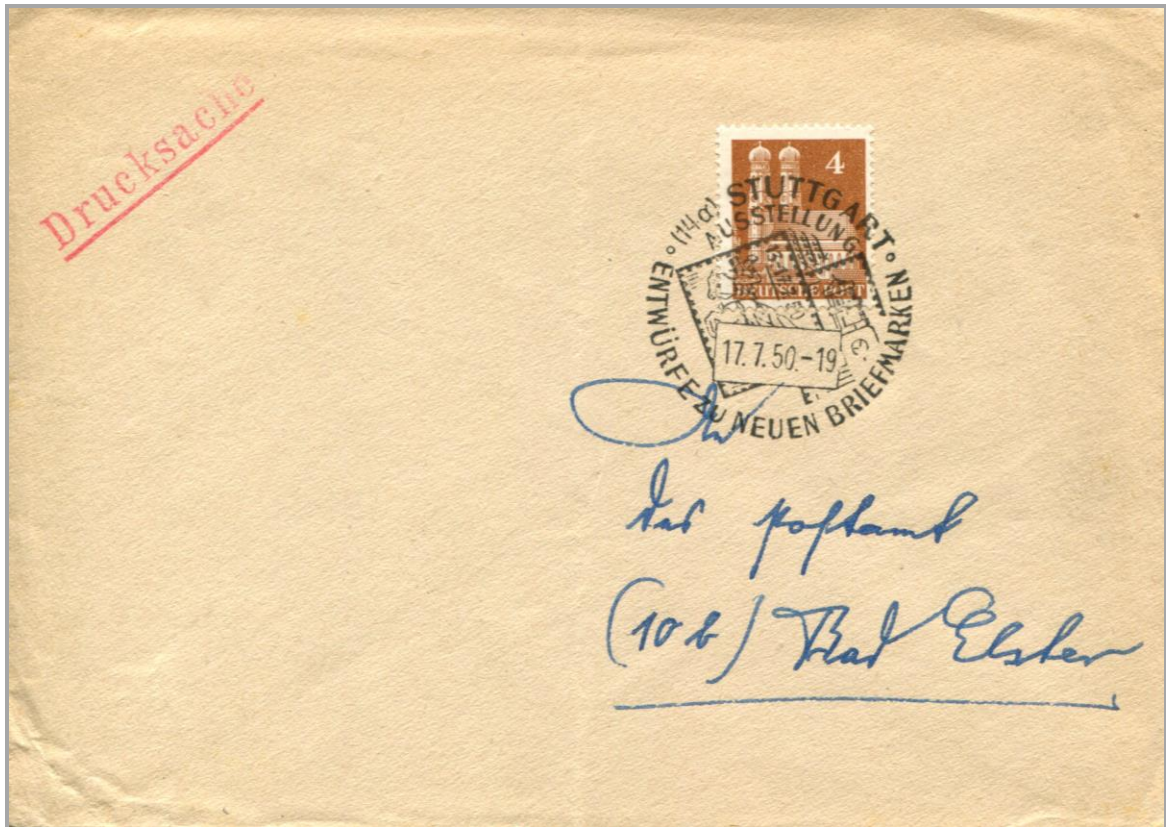 Drucksache
4
DEUTSCHE POST
(14a) STUTTGART
AUSSTELLUNG
17.7.50.-19
ENTWÜRFE ZU NEUEN BRIEFMARKEN
An
das Postamt
(10b) Bad Elster